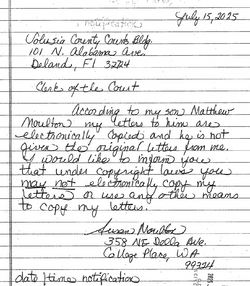 notification
July 15, 2025
Volusia County Courts Bldg.
101 N. Alabama Ave.
Deland, Fl 32724
Clerk of the Court
According to my son Matthew
Moulton my letters to him are
electronically copied and he is not
given the original letters from me.
I would like to inform you
that under copyright laws you
may not electronically copy my
letters or use any other means
to copy my letters.
Susan Moulton
358 NE Ave.
College Place, WA
99324
date/time notification